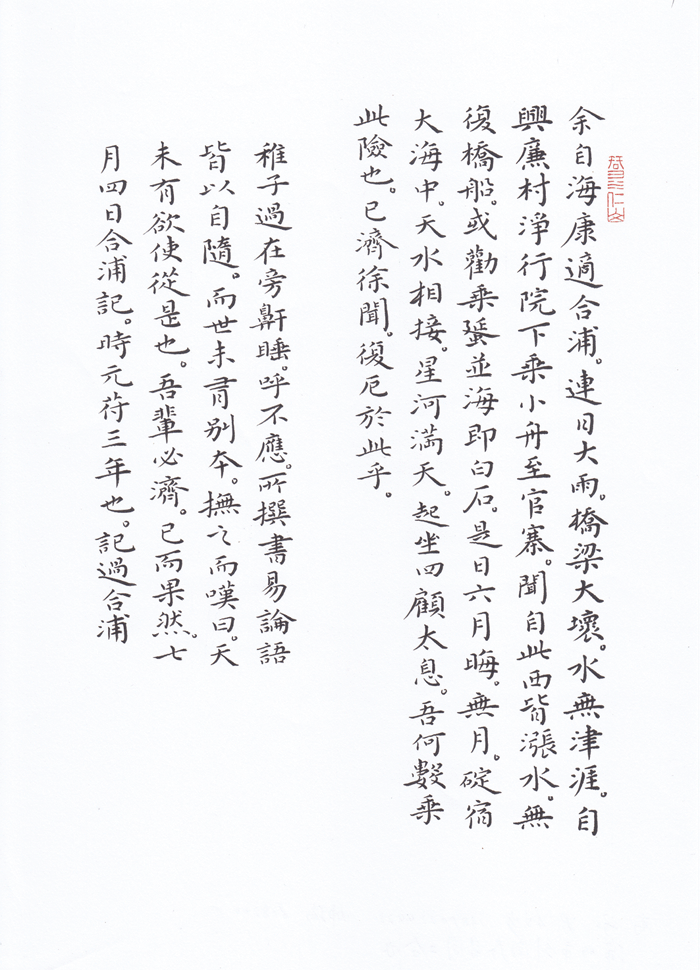 余自海康適合浦。連日大雨。橋梁大壞。水無津涯。自
興廉村淨行院下乘小舟至官寨。聞自此西皆漲水。無
復橋船。或勸乘蜑並海即白石。是日六月晦。無月。碇宿
大海中。天水相接。星河滿天。起坐四顧太息。吾何數乘
此險也。已濟徐聞。復厄於此乎。
稚子過在旁鼾睡。呼不應。所撰書易論語
皆以自隨。而世未有別本。撫之而嘆曰。天
未有欲使從是也。吾輩必濟。已而果然。七
月四日合浦記。時元符三年也。記過合浦